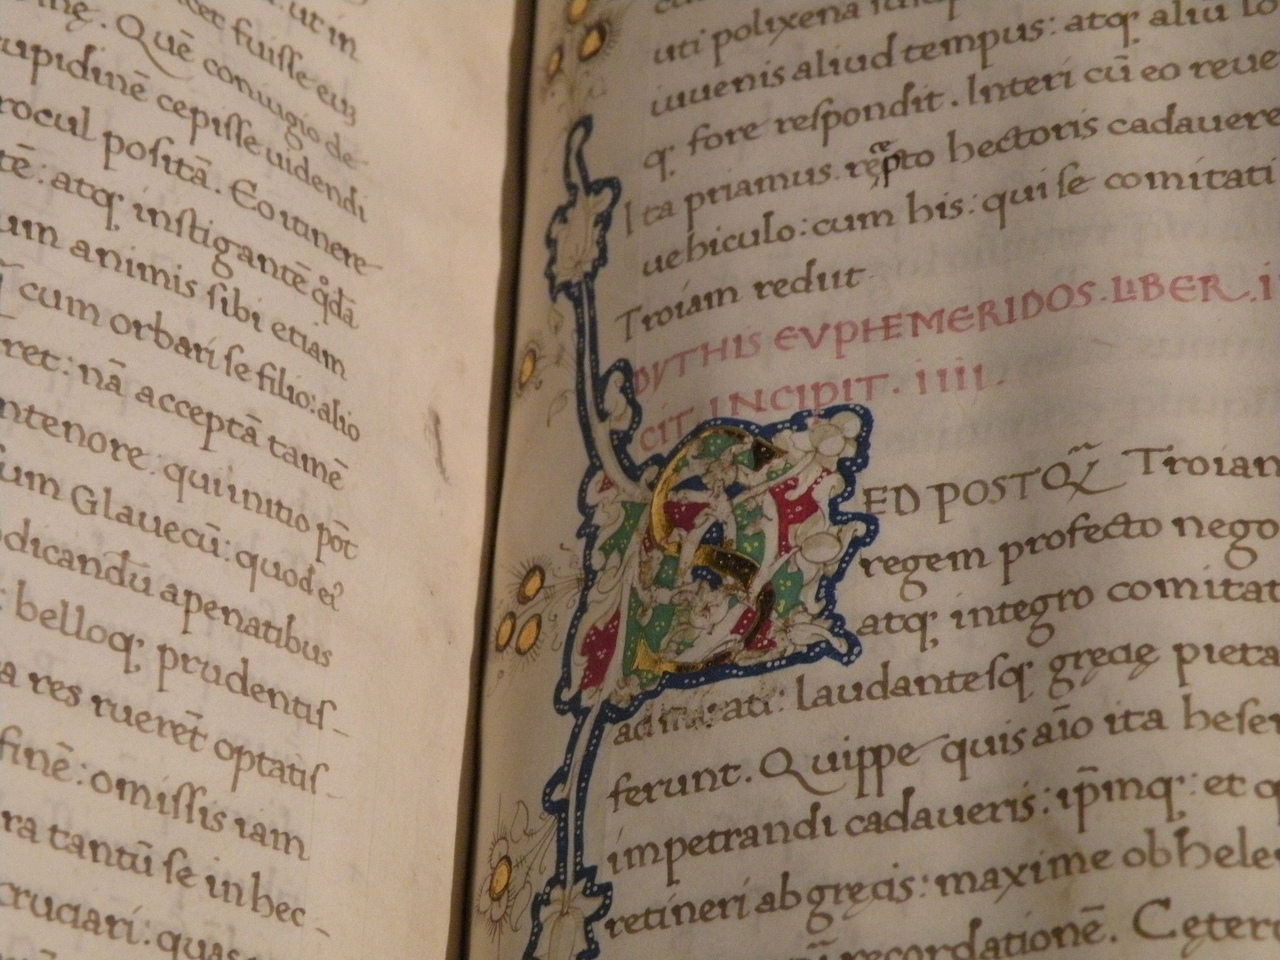 ut in
fuisse euz
Quē coniugio de
cupidinē cepisse uidendi
procul positā. Eo itinere
tē: atq; instigantē qdā
um animis sibi etiam
cum orbari se filio: alio
ret: nā acceptā tamē
ntenore qui initio pōt
um Glauecū: quod ei
dicandū apenatibus
: belloq; prudentis-
a res rueret optatis-
finē: omissis iam
ra tantū se in hec-
cruciari: quas
uti polixena
iuuenis aliud tempus: atq aliū lo
q; fore respondit. Interi cū eo reue
Ita priamus. recpto hectoris cadauere
uehiculo: cum his: qui se comitati
Troiam rediit
DVTHIS EVPHEMERIDOS. LIBER. I
CIT INCIPIT. IIII.
SED POSTQ Troian
regem profecto nego
atq; integro comitat
admirati: laudantesq grecię pieta
ferunt. Quippe quis aīo ita heser
impetrandi cadaueris: ip̄mq: et q
retineri ab gręcis: maxime ob heles
recordationē. Cęter